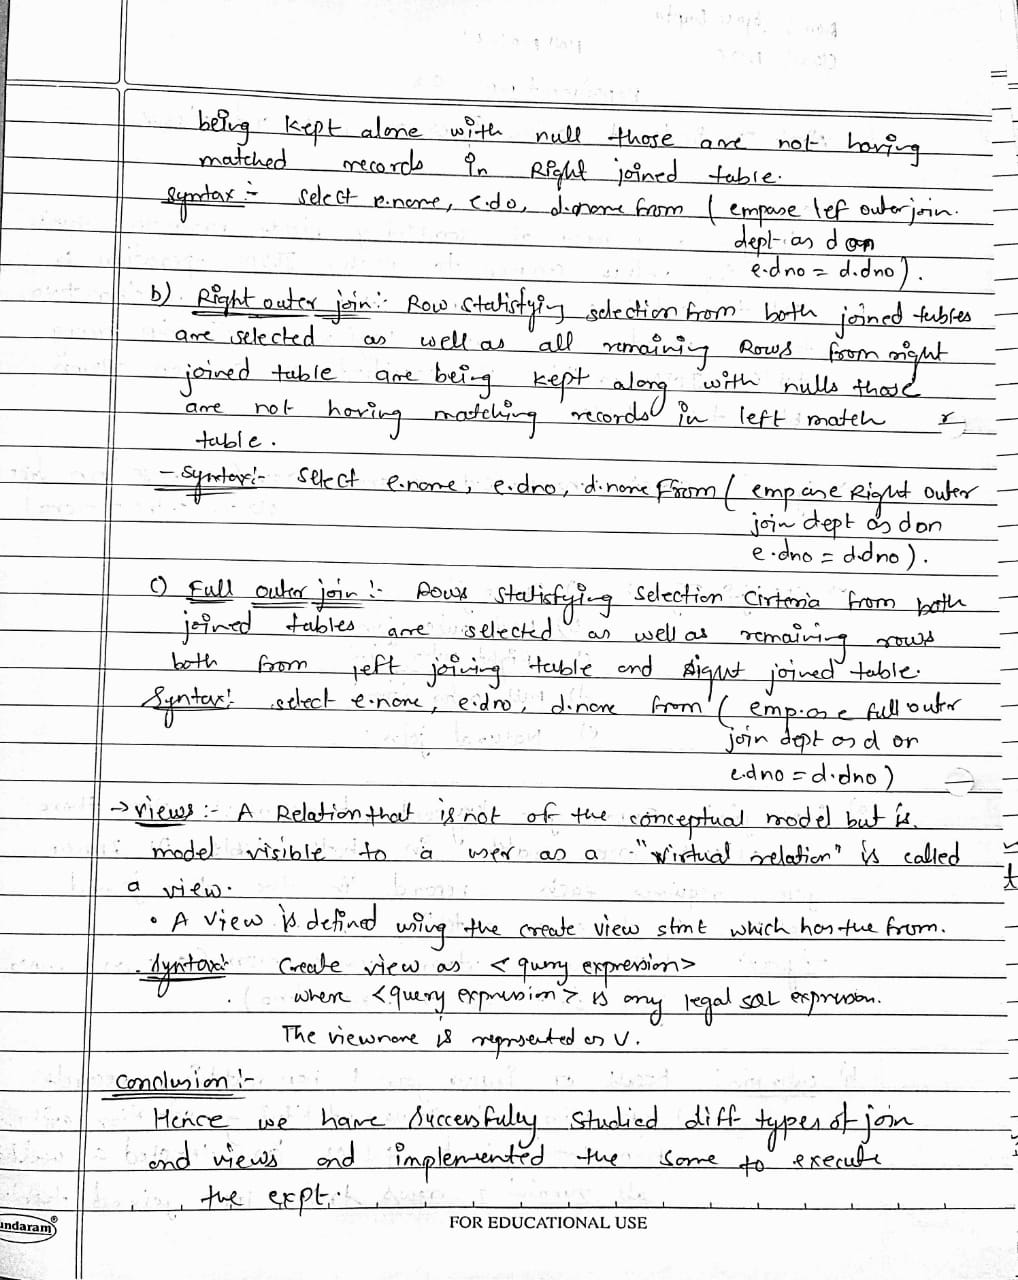 being kept alone with null those are not having
matched records in Right joined table.
Syntax :- select e.name, e.do, d.pname from ( empase lef outer join.
dept as d on
e.dno = d.dno ).
b) Right outer join :- Row statisfying selection from both joined tables
are selected as well as all remaining Rows from right
joined table are being kept along with nulls those
are not having matching records in left match
table.
- Syntax :- select e.name, e.dno, d.name From ( emp as e Right outer
join dept as d on
e.dno = d.dno ).
c) Full outer join :- Rows statisfying selection Cirteria from both
joined tables are selected as well as remaining rows
both from left joining table and right joined table.
Syntax :- select e.name, e.dno, d.name from ( emp as e full outer
join dept as d on
e.dno = d.dno )
→ views :- A Relation that is not of the conceptual model but is.
model visible to a user as a "virtual relation" is called
a view.
• A view is defined using the create view stmt which has the from.
Syntax :- Create view as < query expression>
where <query expression> is any legal SQL expression.
The viewname is represented as V.
Conclusion :-
Hence we have successfully studied diff types of join
and views and implemented the same to execute
the expt.
ndaram®
FOR EDUCATIONAL USE